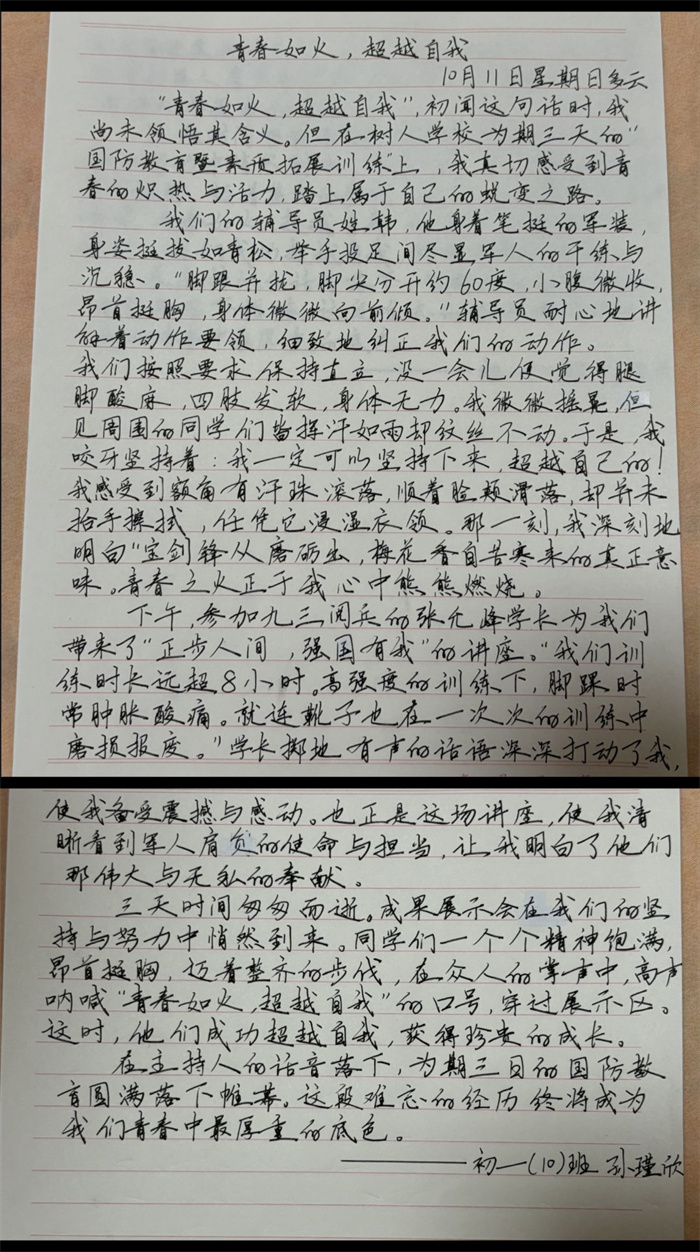 青春如火，超越自我
10月11日星期日多云
“青春如火，超越自我”，初闻这句话时，我
尚未领悟其含义。但在树人学校为期三天的“
国防教育暨素质拓展训练”上，我真切感受到青
春的炽热与活力，踏上属于自己的蜕变之路。
我们的辅导员姓韩，他身着笔挺的军装，
身姿挺拔如青松，举手投足间尽显军人的干练与
沉稳。“脚跟并拢，脚尖分开约60度，小腹微收，
昂首挺胸，身体微微向前倾。”辅导员耐心地讲
解着动作要领，细致地纠正我们的动作。
我们按照要求保持直立，没一会儿便觉得腿
脚酸麻，四肢发软，身体无力。我微微摇晃，但
见周围的同学们皆挥汗如雨却纹丝不动。于是，我
咬牙坚持着：我一定可以坚持下来，超越自己的！
我感受到额角有汗珠滚落，顺着脸颊滑落，却并未
抬手擦拭，任凭它浸湿衣领。那一刻，我深刻地
明白“宝剑锋从磨砺出，梅花香自苦寒来的真正意
味。青春之火正于我心中熊熊燃烧。
下午，参加九三阅兵的张允峰学长为我们
带来了“正步人间，强国有我”的讲座。“我们训
练时长远超8小时。高强度的训练下，脚踝时
常肿胀酸痛。就连靴子也在一次次的训练中
磨损报废。”学长掷地有声的话语深深打动了我，
使我备受震撼与感动。也正是这场讲座，使我清
晰看到军人肩负的使命与担当，让我明白了他们
那伟大与无私的奉献。
三天时间匆匆而逝。成果展示会在我们的坚
持与努力中悄然到来。同学们一个个精神饱满，
昂首挺胸，迈着整齐的步伐，在众人的掌声中，高声
呐喊“青春如火，超越自我”的口号，穿过展示区。
这时，他们成功超越自我，获得珍贵的成长。
在主持人的话音落下，为期三日的国防教
育圆满落下帷幕。这段难忘的经历终将成为
我们青春中最厚重的底色。
——初一(10)班 孙瑾欣